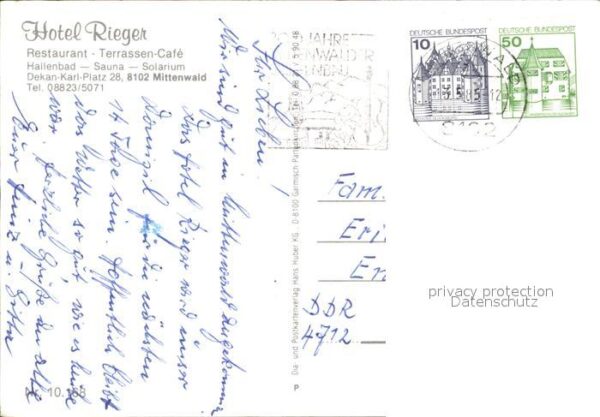 Hotel Rieger
Restaurant - Terrassen-Café
Hallenbad — Sauna — Solarium
Dekan-Karl-Platz 28, 8102 Mittenwald
Tel. 08823/5071
Ihr Lieben!
Wir sind gut in Mittenwald angekommen
Das Hotel Rieger wird unser
Domizil für die nächsten
14 Tage sein. Hoffentlich bleibt
das Wetter so gut wie es heute
war. Herzliche Grüße an alle
Eure Heinz u. Gitta
Dia- und Postkartenverlag Hans Huber KG D-8100 Garmisch-Partenkirchen
P
JAHRE
DEUTSCHE BUNDESPOST
10
DEUTSCHE BUNDESPOST
50
8102
Fam.
Eri
DDR
4712
privacy protection
Datenschutz
Nr. 10.168